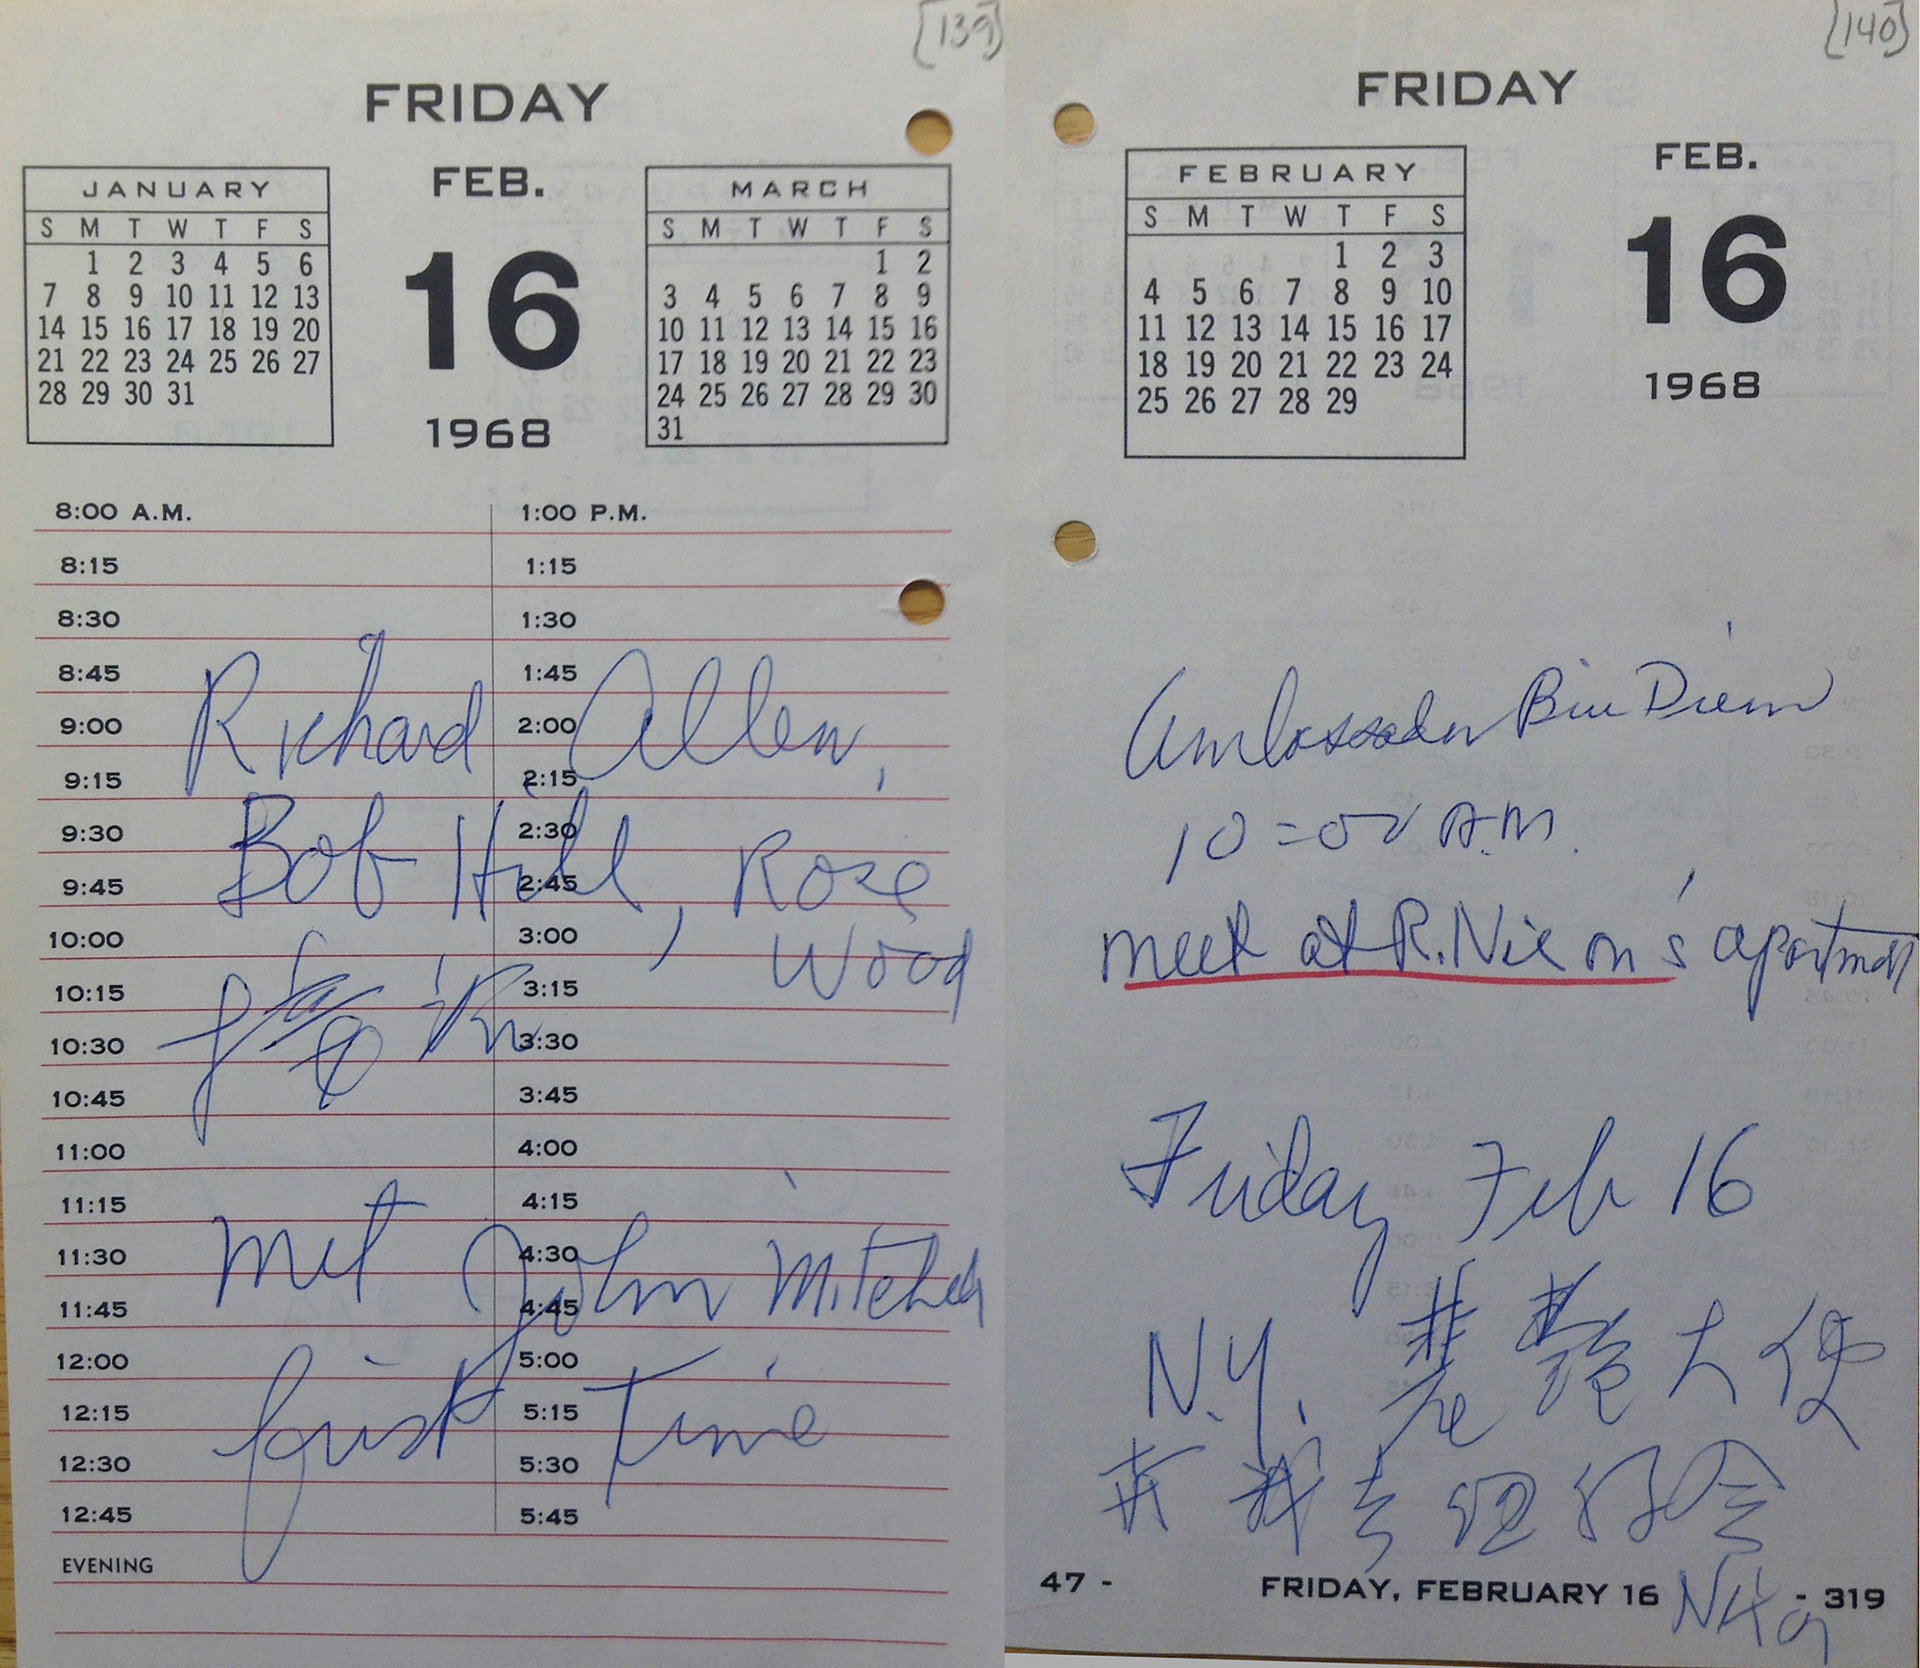 [139]
FRIDAY
JANUARY
S M T W T F S
1 2 3 4 5 6
7 8 9 10 11 12 13
14 15 16 17 18 19 20
21 22 23 24 25 26 27
28 29 30 31
FEB.
16
1968
MARCH
S M T W T F S
1 2
3 4 5 6 7 8 9
10 11 12 13 14 15 16
17 18 19 20 21 22 23
24 25 26 27 28 29 30
31
8:00 A.M. 1:00 P.M.
8:15 1:15
8:30 1:30
8:45 1:45
9:00 2:00
9:15 2:15
9:30 2:30
9:45 2:45
10:00 3:00
10:15 3:15
10:30 3:30
10:45 3:45
11:00 4:00
11:15 4:15
11:30 4:30
11:45 4:45
12:00 5:00
12:15 5:15
12:30 5:30
12:45 5:45
EVENING
Richard Allen,
Bob Hill, Rose
Wood
Met John Mitchell
first time
[140]
FRIDAY
FEBRUARY
S M T W T F S
1 2 3
4 5 6 7 8 9 10
11 12 13 14 15 16 17
18 19 20 21 22 23 24
25 26 27 28 29
FEB.
16
1968
Ambassador Bui Diem
10=00 A.M.
meet at R. Nixon's apartment
Friday Feb 16
N.Y. 大使
我去
47 - FRIDAY, FEBRUARY 16 - 319